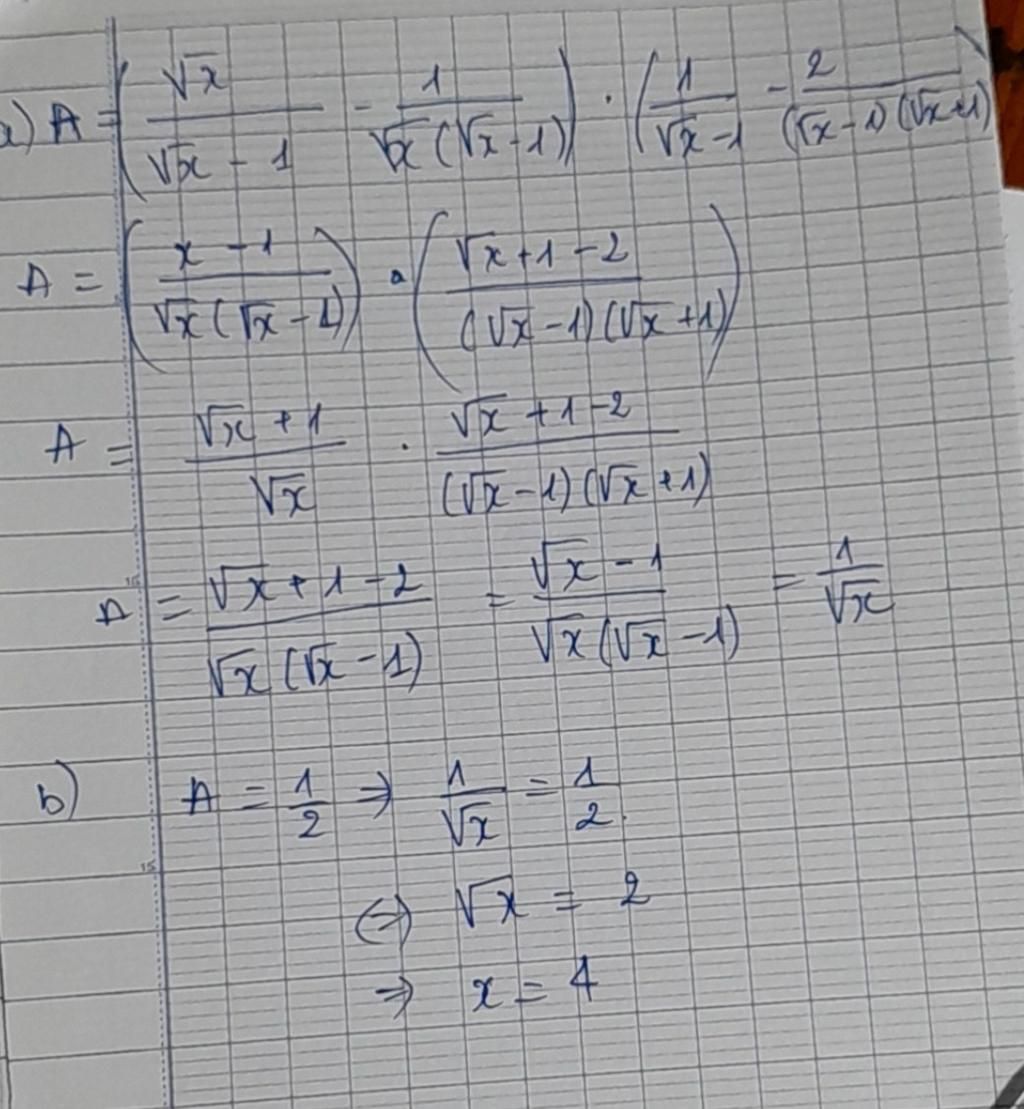 a) A = (√x / (√x - 1) - 1 / (√x (√x - 1))) · (1 / (√x - 1) - 2 / ((√x - 1)(√x + 1))
A = ((x - 1) / (√x (√x - 1))) · ((√x + 1 - 2) / ((√x - 1)(√x + 1)))
A = (√x + 1) / √x · (√x + 1 - 2) / ((√x - 1)(√x + 1))
A = (√x + 1 - 2) / (√x (√x - 1)) = (√x - 1) / (√x (√x - 1)) = 1 / √x
b) A = 1/2 ⇒ 1/√x = 1/2
⇔ √x = 2
⇒ x = 4